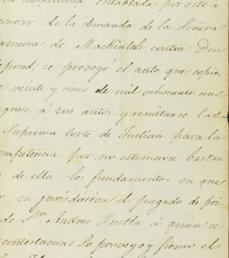 entablada por este a
de la demanda de la Señora
de Mackintosh contra Don
se proveyó el auto que copio
veinte y cinco de mil ochocientos
a sus autos y remítanse la
Suprema Corte de Justicia para la
competencia por no estimarse bastan
de ella los fundamentos en que
su jurisdicción el juzgado de pri
de Sn Andres Tuxtla á quien se
contestará. Lo proveyó y firmó el